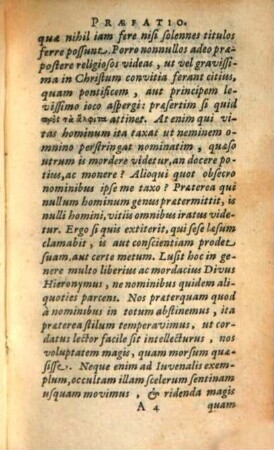 PRÆFATIO.
quæ nihil iam fere nisi solennes titulos
ferre possunt. Porro nonnullos adeo præ-
postere religiosos videas, ut vel gravissi-
ma in Christum convitia ferant citius,
quam pontificem, aut principem le-
vissimo ioco aspergi: præsertim si quid
πρὸς τὰ ἄλφιτα attinet. At enim qui vi-
tas hominum ita taxat ut neminem o-
mnino perstringat nominatim, quæso
utrum is mordere videtur, an docere po-
tius, ac monere? Alioqui quot obsecro
nominibus ipse me taxo? Præterea qui
nullum hominum genus prætermittit, is
nulli homini, vitiis omnibus iratus vide-
tur. Ergo si quis extiterit, qui sese læsum
clamabit, is aut conscientiam prodet
suam, aut certe metum. Lusit hoc in ge-
nere multo liberius ac mordacius Divus
Hieronymus, ne nominibus quidem ali-
quoties parcens. Nos præterquam quod
à nominibus in totum abstinemus, ita
præterea stilum temperavimus, ut cor-
datus lector facile sit intellecturus, nos
voluptatem magis, quam morsum quæ-
sisse. Neque enim ad Iuvenalis exem-
plum, occultam illam scelerum sentinam
usquam movimus, & ridenda magis
A 4 quam